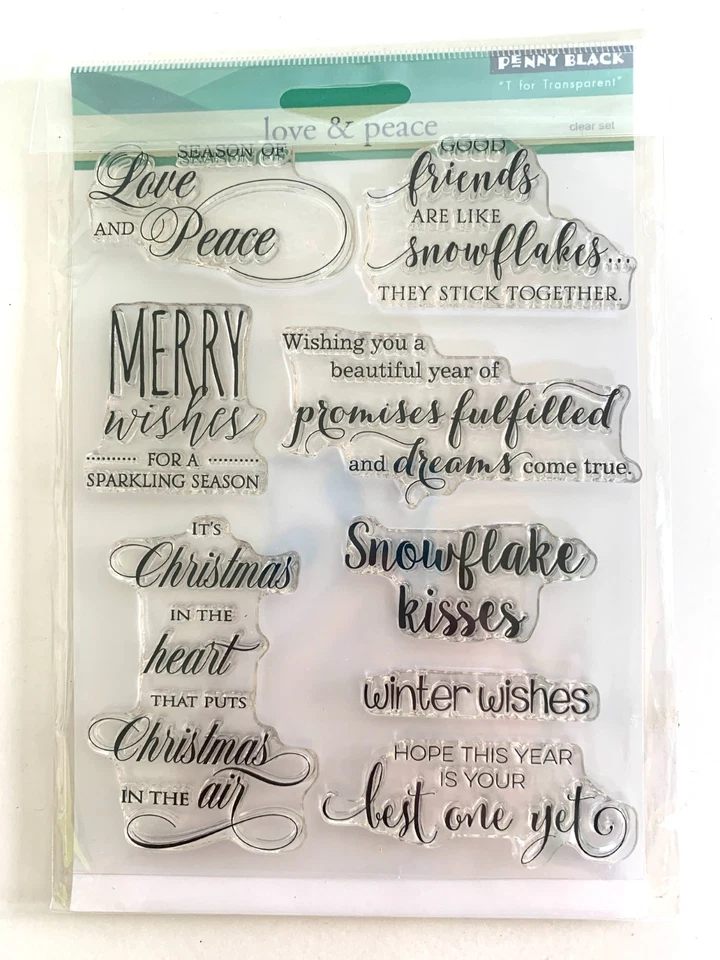 PENNY BLACK
"T for Transparent"
love & peace
clear set
SEASON OF
Love
AND Peace
GOOD
friends
ARE LIKE
snowflakes...
THEY STICK TOGETHER.
MERRY
wishes
FOR A
SPARKLING SEASON
Wishing you a
beautiful year of
promises fulfilled
and dreams come true.
IT'S
Christmas
IN THE
heart
THAT PUTS
Christmas
IN THE air
Snowflake
kisses
winter wishes
HOPE THIS YEAR
IS YOUR
best one yet